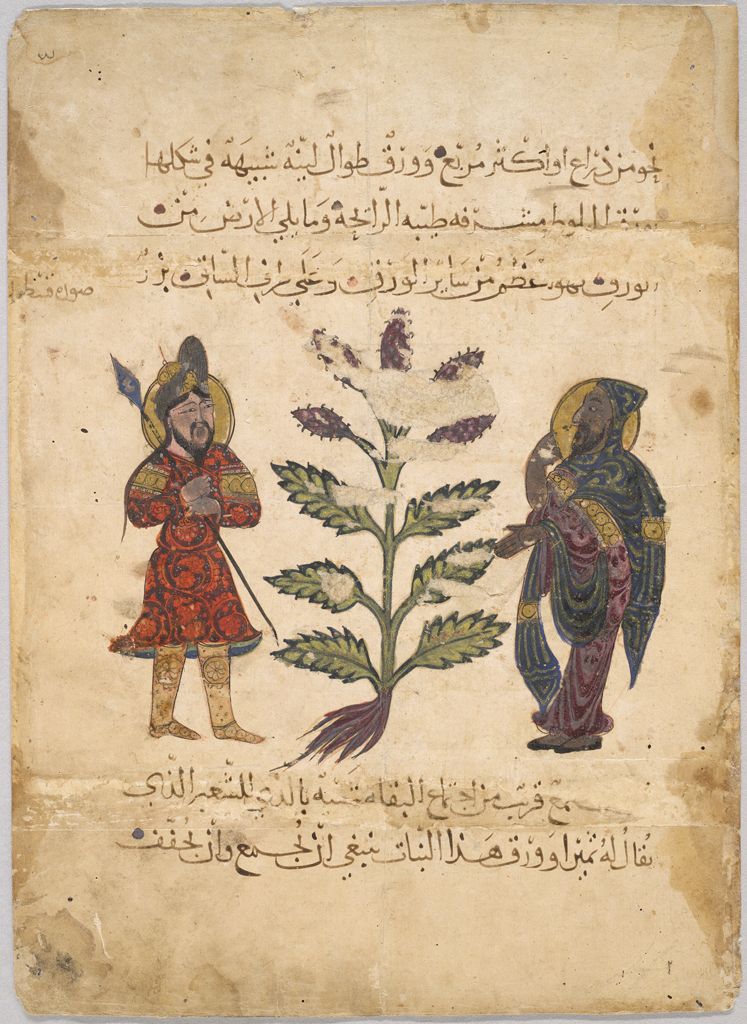 نحو من ذراع او اكثر مربع وورق طوال لينة شبيهة في شكلها
بورق البلوط مشرفه طيبه الرائحة وما يلي الارض من
الورق فهو عظم من ساير الورق وعلى راف الساق بزر
صواه
قريب من اجتماع البقله شبيه بالذي للشعير الذي
يقال له ثمين او ورق هذا النبات ينبغي ان يجمع وان يجفف